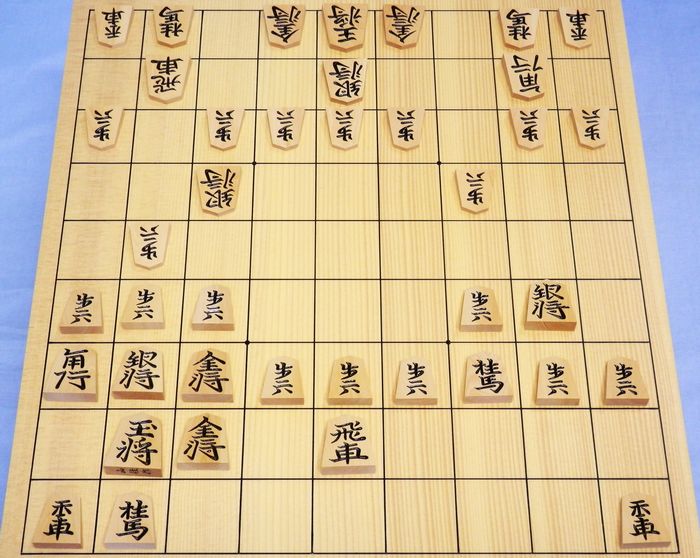 香車 桂馬 金将 王将 金将 桂馬 香車
飛車 銀将 角行
歩兵 歩兵 歩兵 歩兵 歩兵 歩兵 歩兵
銀将 歩兵
歩兵
歩兵 歩兵 歩兵 歩兵 銀将
角行 銀将 金将 歩兵 歩兵 歩兵 桂馬 歩兵 歩兵
玉将 金将 飛車
香車 桂馬 香車